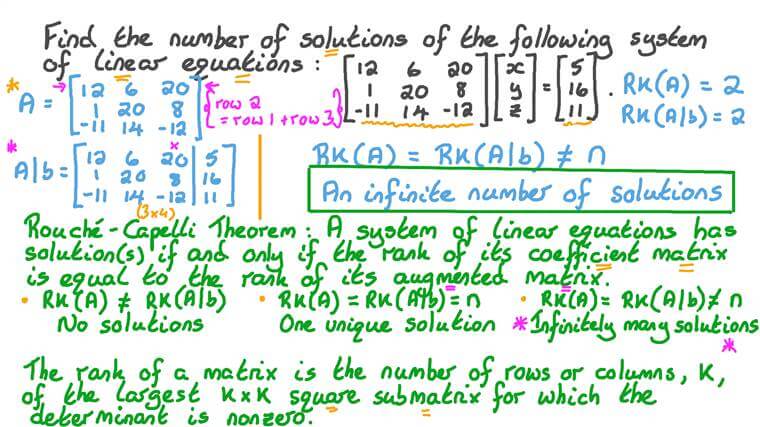 Find the number of solutions of the following system
of linear equations : [12 6 20 [x [5
1 20 8 y = 16
-11 14 -12] z] 11] .
RK(A) = 2
RK(A|b) = 2
* A = [12 6 20
1 20 8
-11 14 -12]
row 2
= row 1 + row 3
* A|b = [12 6 20 | 5
1 20 8 | 16
-11 14 -12 | 11]
(3x4)
x
RK(A) = RK(A|b) ≠ n
An infinite number of solutions
Rouché-Capelli Theorem : A system of linear equations has
solution(s) if and only if the rank of its coefficient matrix
is equal to the rank of its augmented matrix.
• RK(A) ≠ RK(A|b) • RK(A) = RK(A|b) = n • RK(A) = RK(A|b) ≠ n
No solutions One unique solution * Infinitely many solutions
*
The rank of a matrix is the number of rows or columns, K,
of the largest K x K square submatrix for which the
determinant is nonzero.